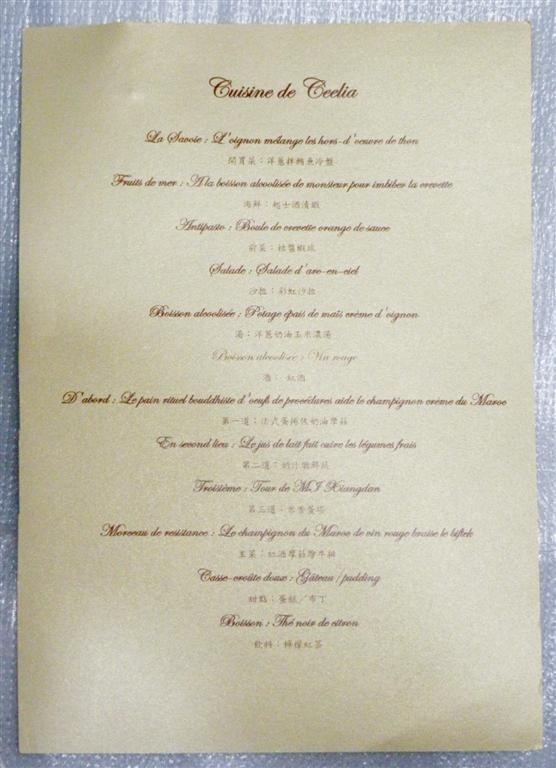 Cuisine de Ceelia
La Savoie : L'oignon mélange les hors-d'oeuvre de thon
開胃菜：洋蔥拌鮪魚冷盤
Fruits de mer : A la boisson alcoolisée de monsieur pour imbiber la crevette
海鮮：起士酒漬蝦
Antipasto : Boule de crevette orange de sauce
前菜：桔醬蝦球
Salade : Salade d'arc-en-ciel
沙拉：彩虹沙拉
Boisson alcoolisée : Potage épais de maïs crème d'oignon
湯：洋蔥奶油玉米濃湯
Boisson alcoolisée : Vin rouge
酒：紅酒
D'abord : Le pain rituel bouddhiste d'oeufs de procédures aide le champignon crème du Maroc
第一道：法式蛋捲佐奶油摩菇
En second lieu : Le jus de lait fait cuire les légumes frais
第二道：奶汁燉鮮蔬
Troisième : Tour de M.I Xiangdan
第三道：米香蛋塔
Morceau de resistance : Le champignon du Maroc de vin rouge braise le biftek
主菜：紅酒摩菇燴牛排
Casse-croûte doux : Gâteau / pudding
甜點：蛋糕／布丁
Boisson : Thé noir de citron
飲料：檸檬紅茶